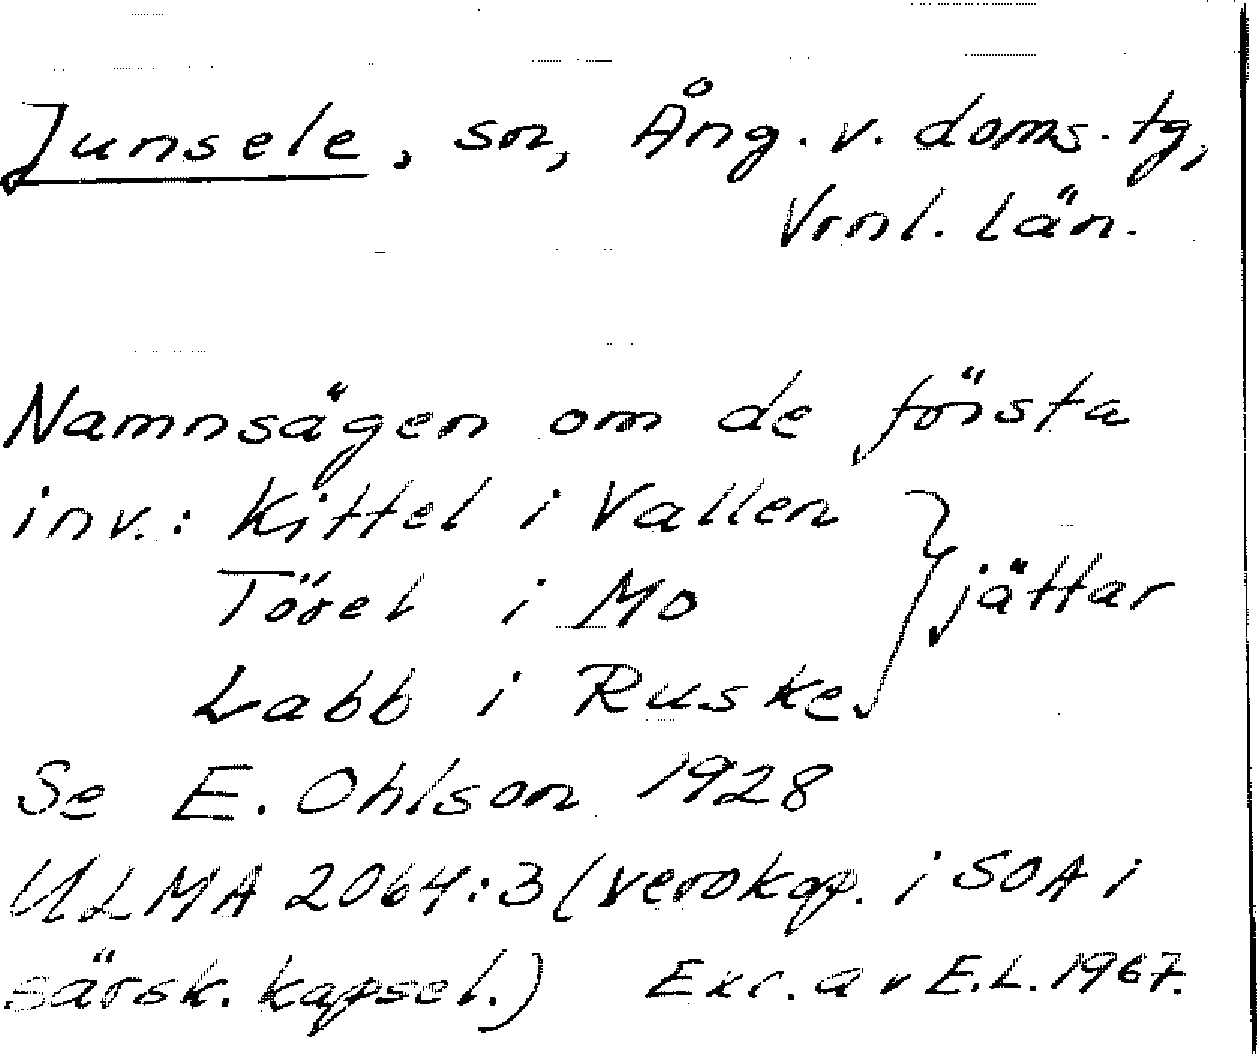 Junsele, sn, Ång. v. doms. tg,
Vrnl. län.
Namnsägen om de första
inv.: Kittel i Vallen
Törel i Mo } jättar
Labb i Ruske
Se E. Ohlson 1928
ULMA 2064:3 (xerokop. i SOA i
särsk. kapsel.) Exc. av E.L. 1967.